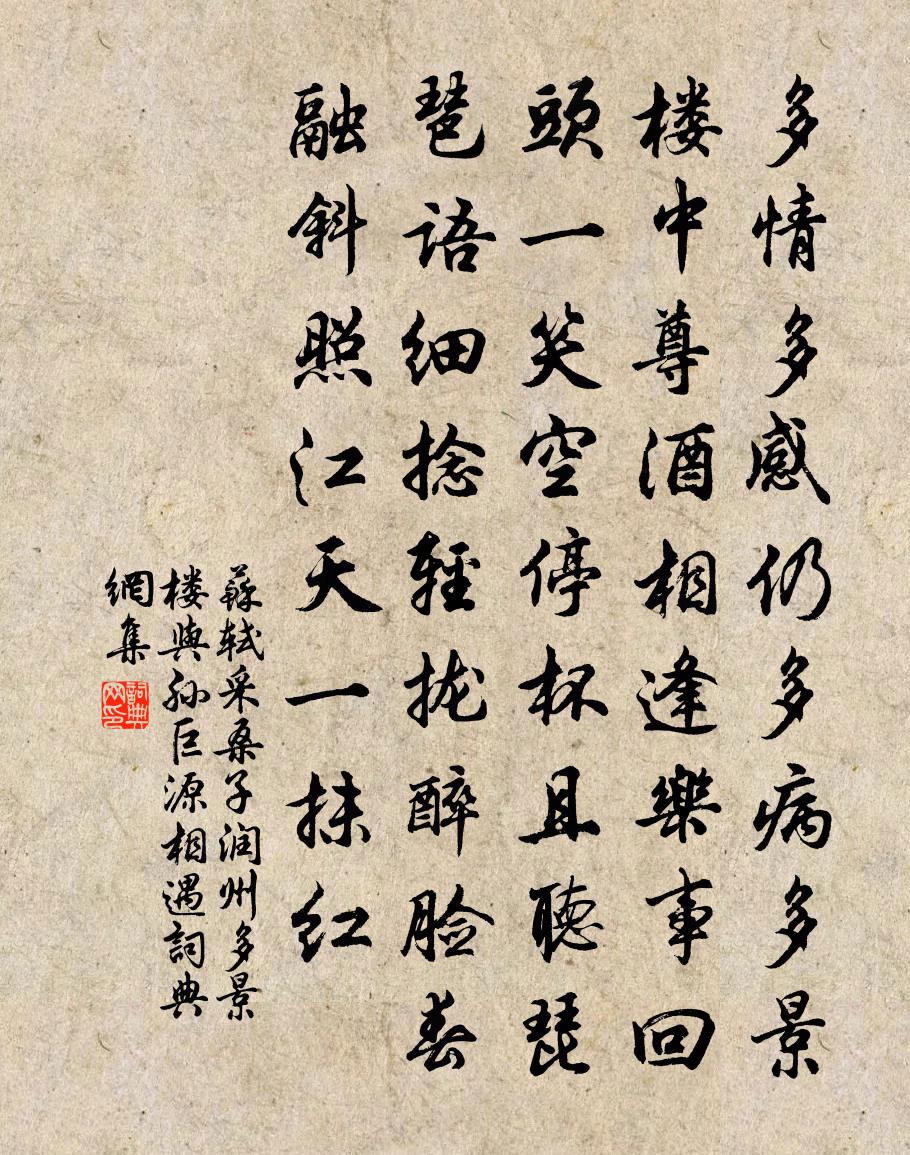 多情多感仍多病多景
楼中尊酒相逢樂事回
頭一笑空停杯且聽琵
琶语细捻輕拢醉脸春
融斜照江天一抹红
蘇轼采桑子润州多景
楼與孙巨源相遇詞典
網集
詞典网印